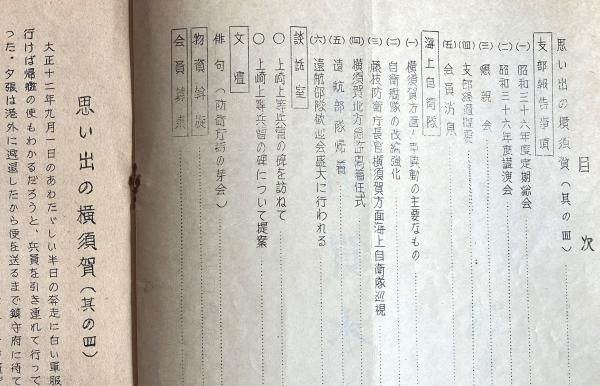 目次
思い出の横須賀（其の四）
支部報告事項
(一) 昭和三十六年度定期総会
(二) 昭和三十六年度講演会
(三) 懇親会
(四) 支部経過概要
(五) 会員消息
海上自衛隊
(一) 横須賀方面人事異動の主要なもの
(二) 自衛艦隊の改編強化
(三) 藤枝防衛庁長官横須賀方面海上自衛隊巡視
(四) 横須賀地方総監着任式
(五) 遠航部隊帰着
(六) 遠航部隊歓迎会盛大に行われる
談話室
〇 上崎上等兵曹の碑を訪ねて
〇 上崎上等兵曹の碑について提案
文壇
俳句（防衛庁柳の芽会）
物資斡旋
会員募集
思い出の横須賀（其の四）
大正十二年九月一日のあわただしい半日の奔走に白い軍服
行けば帰艦の便もわかるだろうと、兵員を引き連れて行って
った・夕張は港外に避退したから便を送るまで鎮守府に待て